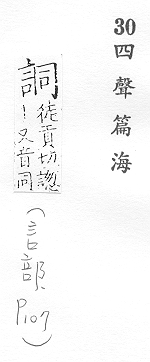 30四聲篇海
詷徒貢切諰
丨又音同
(言部,
P107